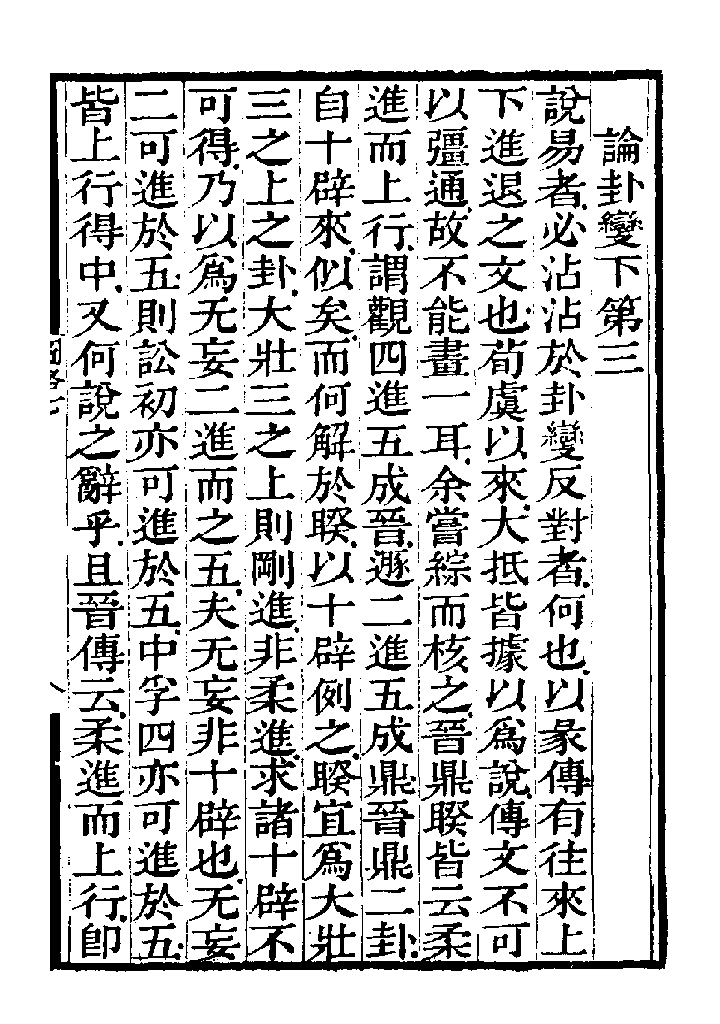 論卦變下第三
說易者必沾沾於卦變反對者何也以彖傳有往來上
下進退之文也荀虞以來大抵皆據以爲說傳文不可
以彊通故不能畫一耳余嘗綜而核之晉鼎睽皆云柔
進而上行謂觀四進五成晉遯二進五成鼎晉鼎二卦
自十辟來似矣而何解於睽以十辟例之睽宜爲大壯
三之上之卦大壯三之上則剛進非柔進求諸十辟不
可得乃以爲无妄二進而之五夫无妄非十辟也无妄
二可進於五則訟初亦可進於五中孚四亦可進於五
皆上行得中又何說之辭乎且晉傳云柔進而上行卽